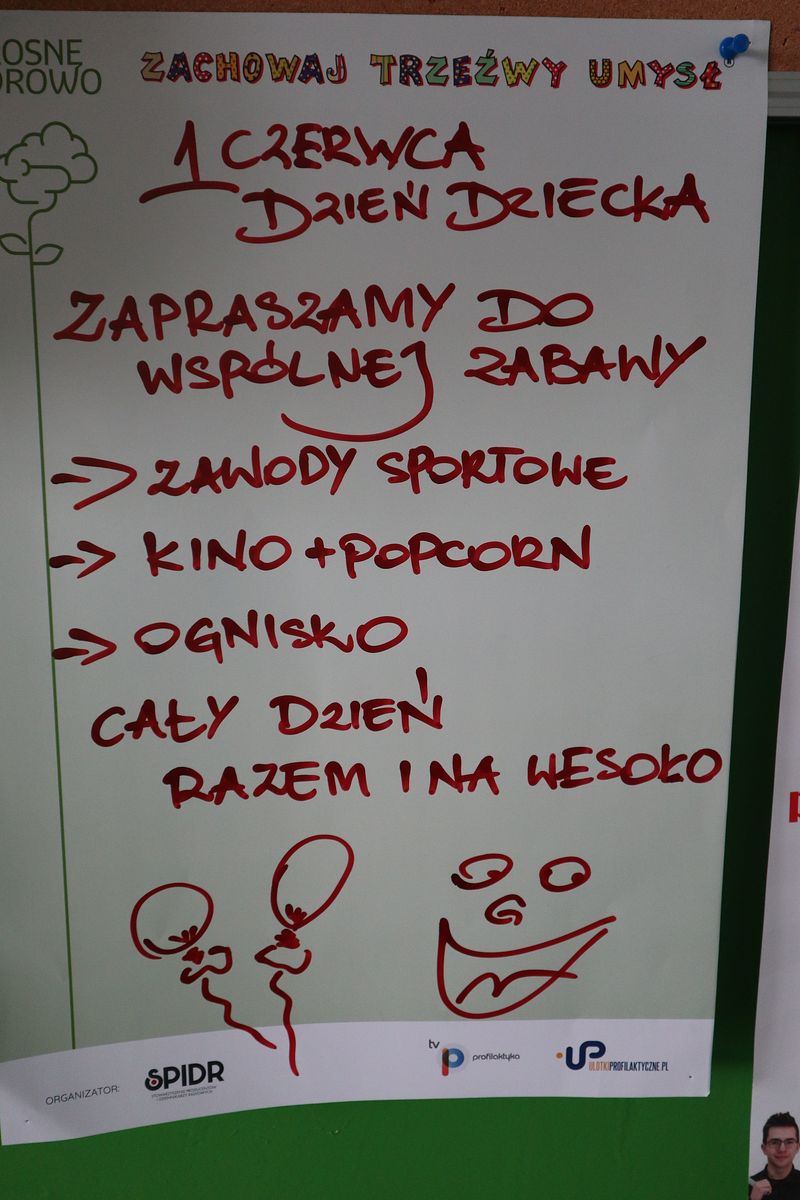 ROSNĘ
ZDROWO
ZACHOWAJ TRZEŹWY UMYSŁ
1 CZERWCA
DZIEŃ DZIECKA
ZAPRASZAMY DO
WSPÓLNEJ ZABAWY
-> ZAWODY SPORTOWE
-> KINO + POPCORN
-> OGNISKO
CAŁY DZIEŃ
RAZEM I NA WESOŁO
ORGANIZATOR:
SPIDR
STOWARZYSZENIE PRODUCENTÓW
I DZIENNIKARZY RADIOWYCH
tv p profilaktyka
UP ULOTKIPROFILAKTYCZNE.PL